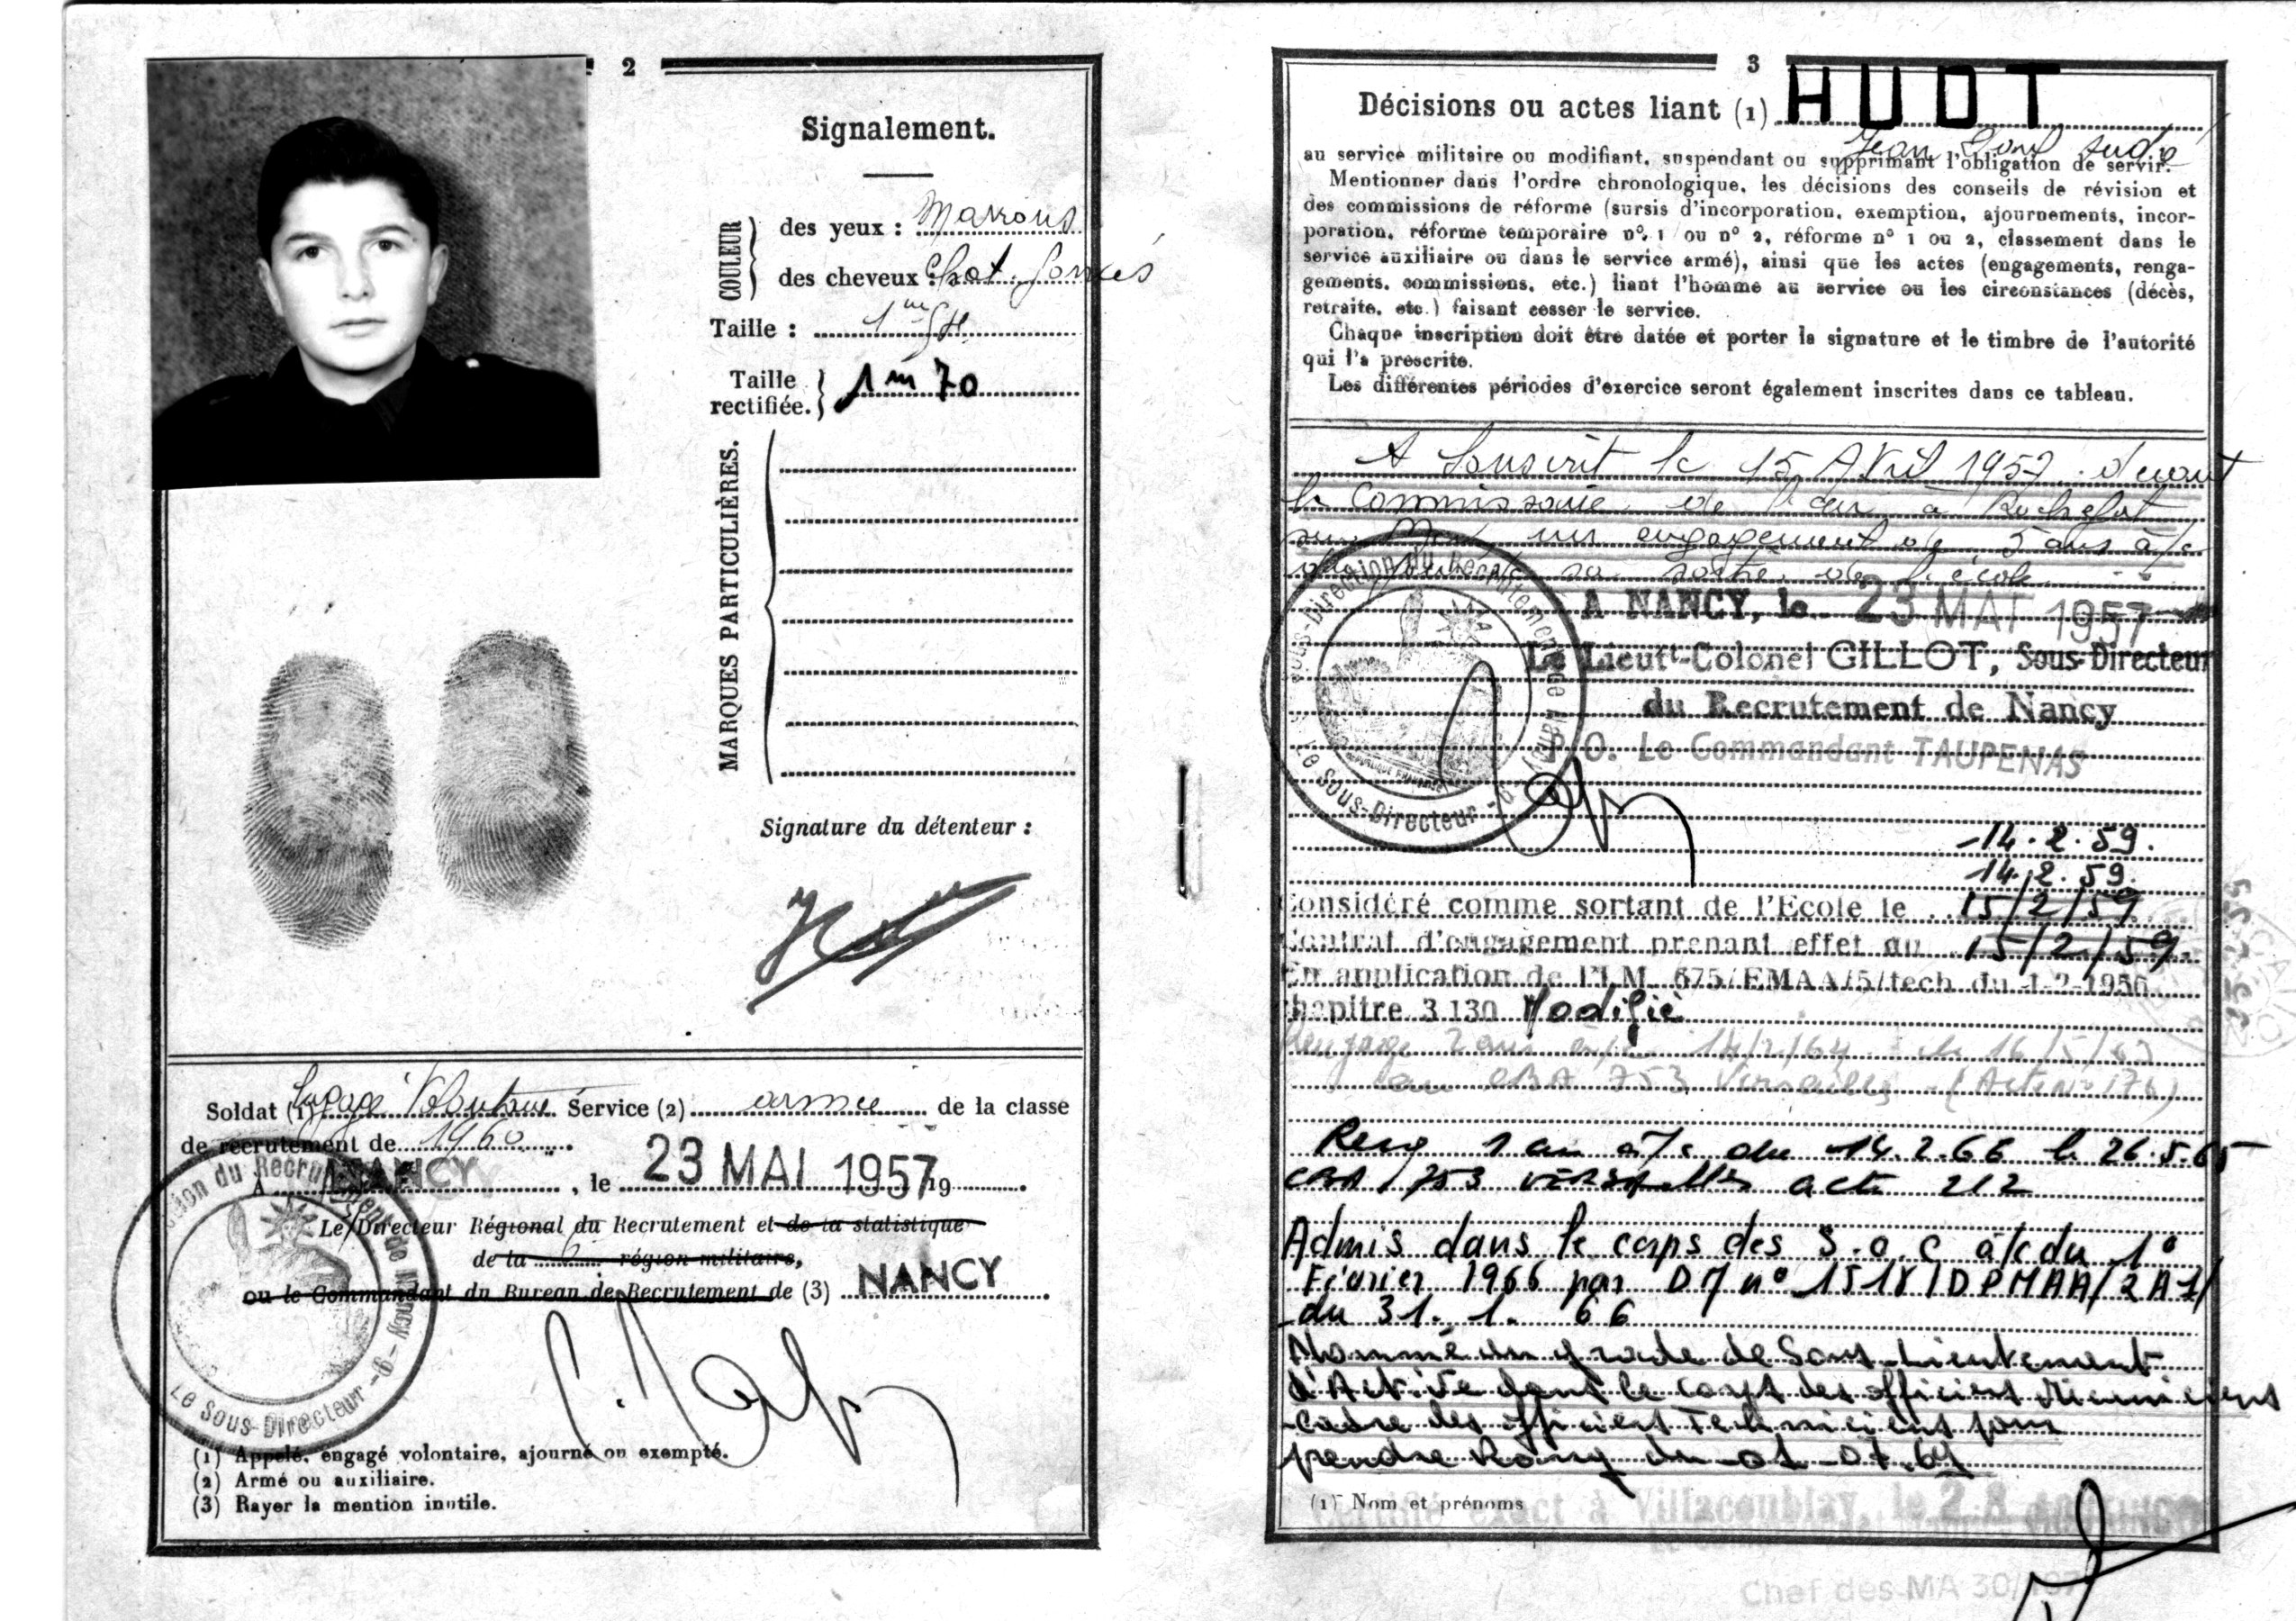 2
Signalement.
COULEUR
des yeux : Marrons
des cheveux : Chat. foncés
Taille :
Taille rectifiée. 1 m 70
MARQUES PARTICULIÈRES.
Signature du détenteur :
Soldat (1) Engagé Volontaire Service (2) armé de la classe
de recrutement de 1960
A NANCY, le 23 MAI 1957 19
Le Directeur Régional du Recrutement et de la statistique
de la 6 région militaire,
ou le Commandant du Bureau de Recrutement de (3) NANCY
Le Sous-Directeur
(1) Appelé, engagé volontaire, ajourné ou exempté.
(2) Armé ou auxiliaire.
(3) Rayer la mention inutile.
3
Décisions ou actes liant (1) HUOT
Jean
au service militaire ou modifiant, suspendant ou supprimant l'obligation de servir.
Mentionner dans l'ordre chronologique, les décisions des conseils de révision et
des commissions de réforme (sursis d'incorporation, exemption, ajournements, incor-
poration, réforme temporaire n° 1 ou n° 2, réforme n° 1 ou 2, classement dans le
service auxiliaire ou dans le service armé), ainsi que les actes (engagements, renga-
gements, commissions, etc.) liant l'homme au service ou les circonstances (décès,
retraite, etc.) faisant cesser le service.
Chaque inscription doit être datée et porter la signature et le timbre de l'autorité
qui l'a prescrite.
Les différentes périodes d'exercice seront également inscrites dans ce tableau.
A Souscrit le 15 Avril 1957 devant
le Commissaire de l'air à Rochefort
sur Mer un engagement de 5 ans à/c
sa sortie de l'école
A NANCY, le 23 MAI 1957
Le Lieut^t-Colonel GILLOT, Sous-Directeur
du Recrutement de Nancy
P.O. Le Commandant TAUPENAS
Sous-Direction du Recrutement de Nancy
Le Sous-Directeur -6-
14.2.59.
14.2.59.
Considéré comme sortant de l'Ecole le 15/2/59
Contrat d'engagement prenant effet du 15/2/59.
En application de l'I.M. 675/EMAA/5/tech du 1-2-1956
chapitre 3.130 Modifié
Rengagé 2 ans à/c 14/2/64 le 16/5/63
au CBA 753 Versailles (Acte N° 176)
Reng 1 an à/c du 14.2.66 le 26.5.65
CBA 753 Versailles acte 212
Admis dans le corps des S.O.C à/c du 1°
Février 1966 par DM n° 1518/DPMAA/2A1/
du 31. 1. 66
Nommé au grade de Sous-Lieutenant
d'Active dans le corps des officiers Mécaniciens
Cadre des officiers Techniciens pour
prendre Rang du 01-07.69
(1) Nom et prénoms
Certifié exact à Villacoublay, le 28
Chef des MA 30/